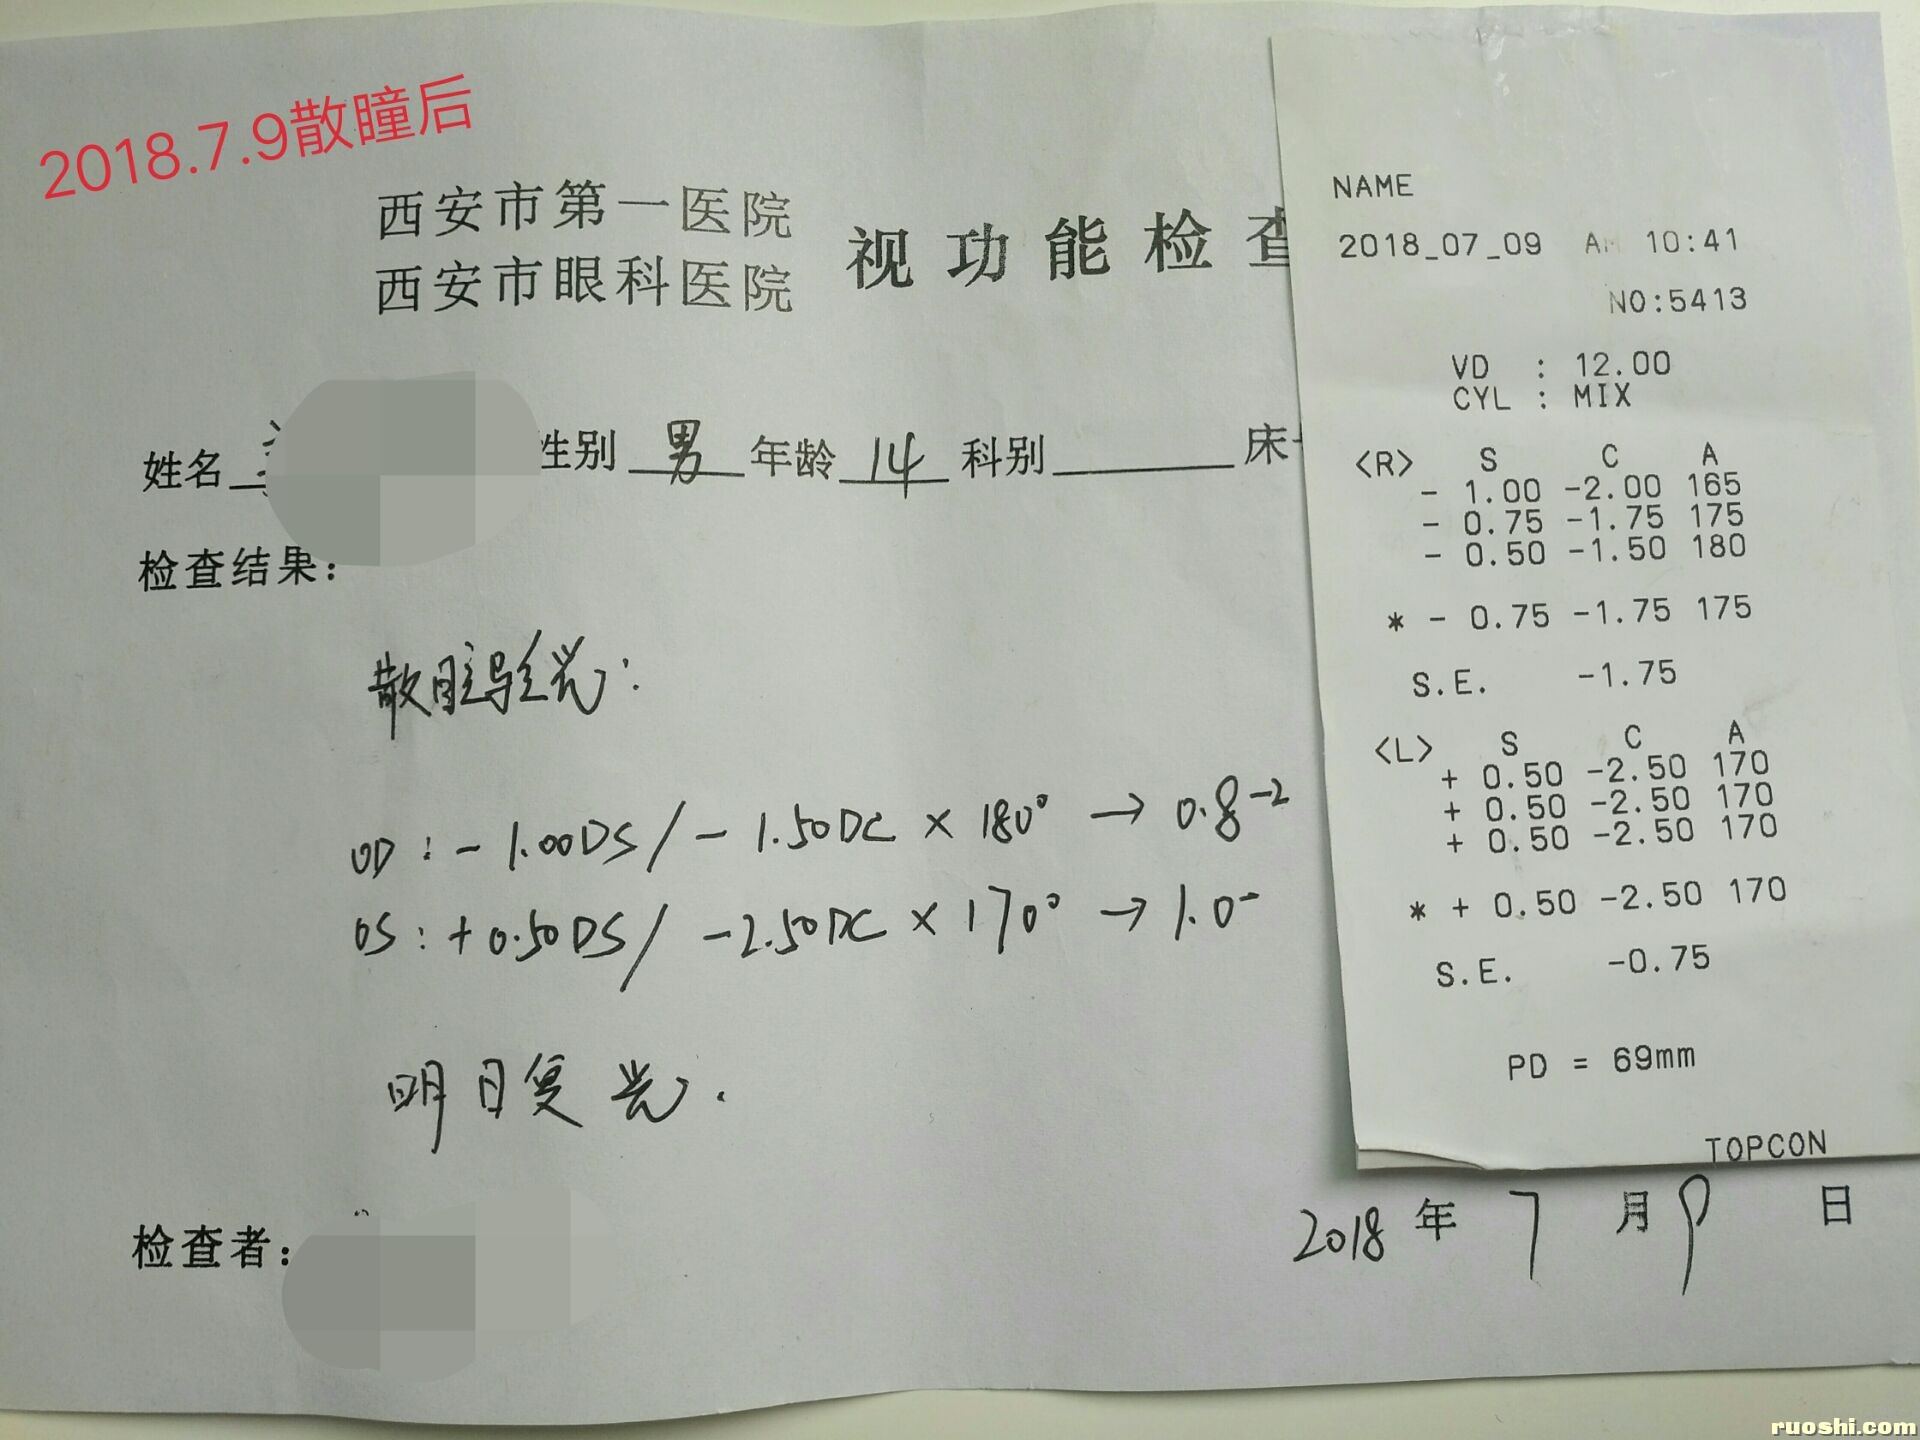 2018.7.9散瞳后
西安市第一医院
西安市眼科医院
视功能检查
姓名 性别 男 年龄 14 科别 床
检查结果:
散瞳验光:
OD: -1.00DS/-1.50DC×180°→0.8-2
OS: +0.50DS/-2.50DC×170°→1.0-
明日复光.
检查者:
2018年7月9日
NAME
2018_07_09 AM 10:41
NO:5413
VD : 12.00
CYL : MIX
<R> S C A
- 1.00 -2.00 165
- 0.75 -1.75 175
- 0.50 -1.50 180
* - 0.75 -1.75 175
S.E. -1.75
<L> S C A
+ 0.50 -2.50 170
+ 0.50 -2.50 170
+ 0.50 -2.50 170
* + 0.50 -2.50 170
S.E. -0.75
PD = 69mm
TOPCON
ruoshi.com